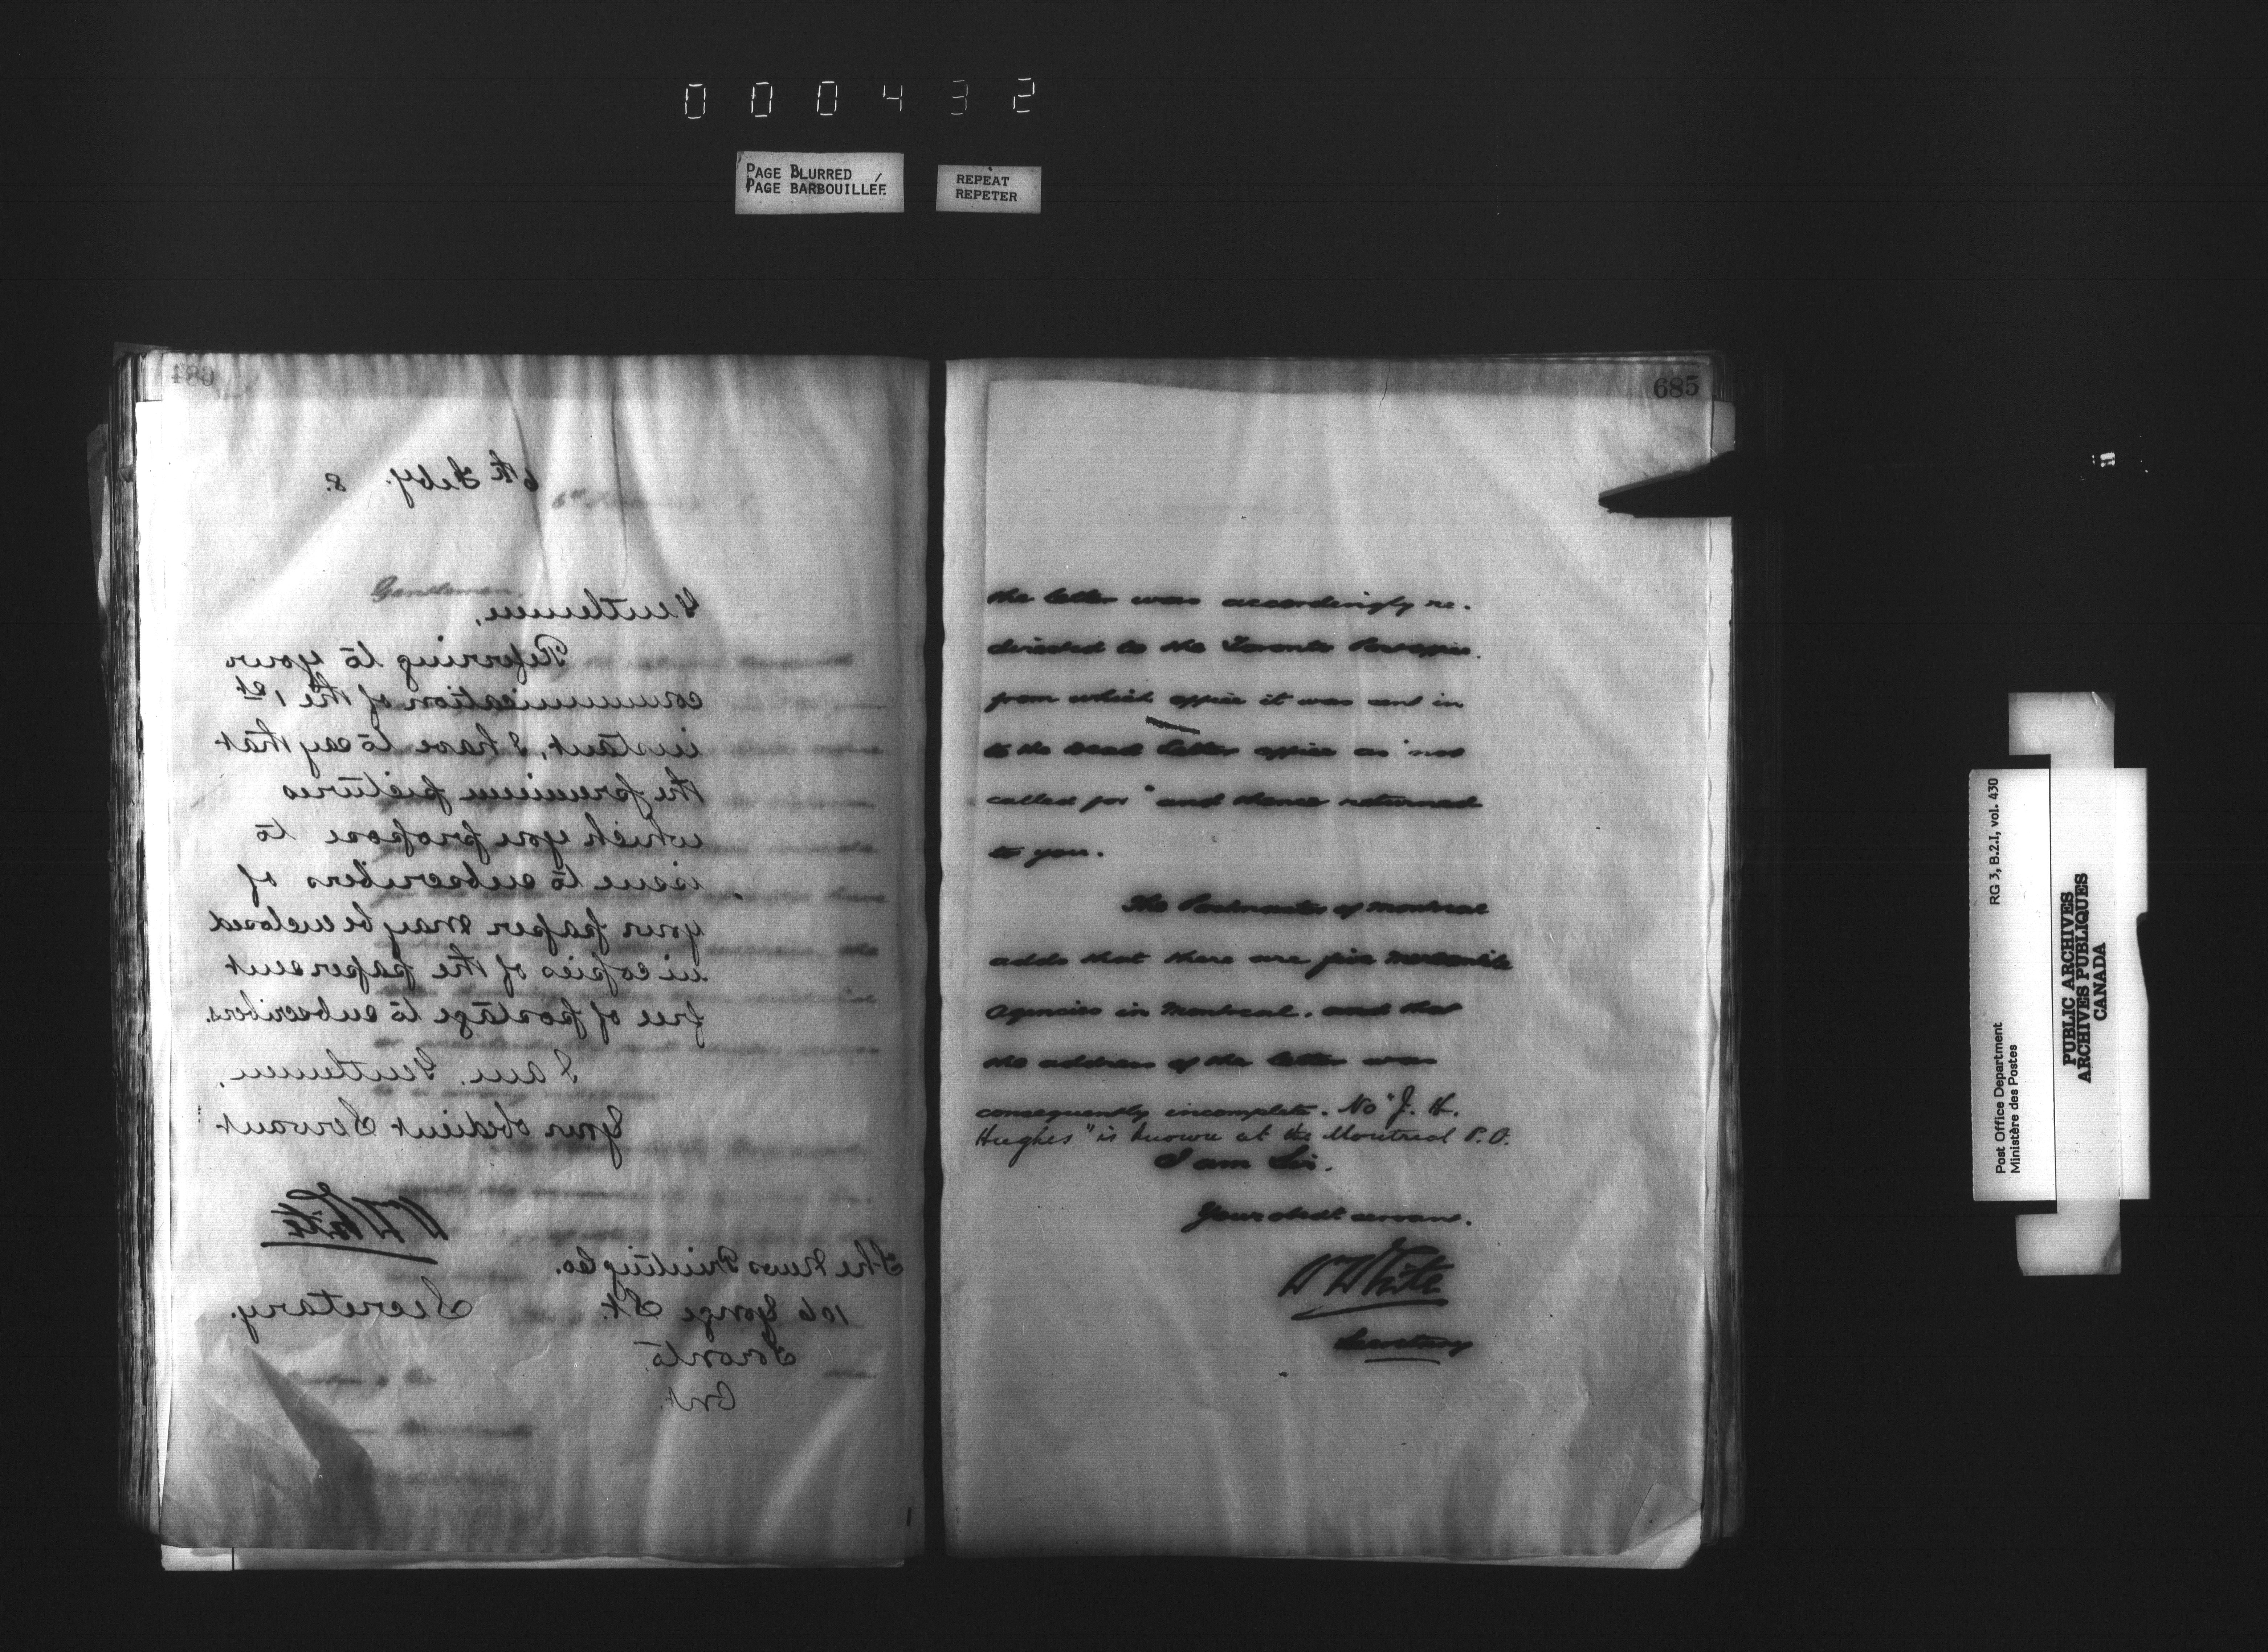 000432
PAGE BLURRED
PAGE BARBOUILLÉE
REPEAT
REPETER
684
6th Feby. 8.
Gentlemen,
Referring to your
communication of the 1st
instant, I have to say that
the premium pictures
which you propose to
issue to subscribers of
your paper may be enclosed
in copies of the paper sent
free of postage to subscribers.
I am, Gentlemen,
Your obedient Servant
Wm White
Secretary.
The News Printing Co.
106 Yonge St.
Toronto.
Ont.
Gentlemen,
685
the letter was accordingly re-
directed to the Toronto Post office.
from which office it was sent in
to the Dead Letter office as "not
called for" and thence returned
to you.
The Postmaster of Montreal
adds that there are five mercantile
agencies in Montreal, and that
the address of the letter was
consequently incomplete. No "J. H.
Hughes" is known at the Montreal P.O.
I am Sir.
Your obedt servant.
Wm White
Secretary
Post Office Department
Ministère des Postes
RG 3, B.2.I, vol. 430
PUBLIC ARCHIVES
ARCHIVES PUBLIQUES
CANADA